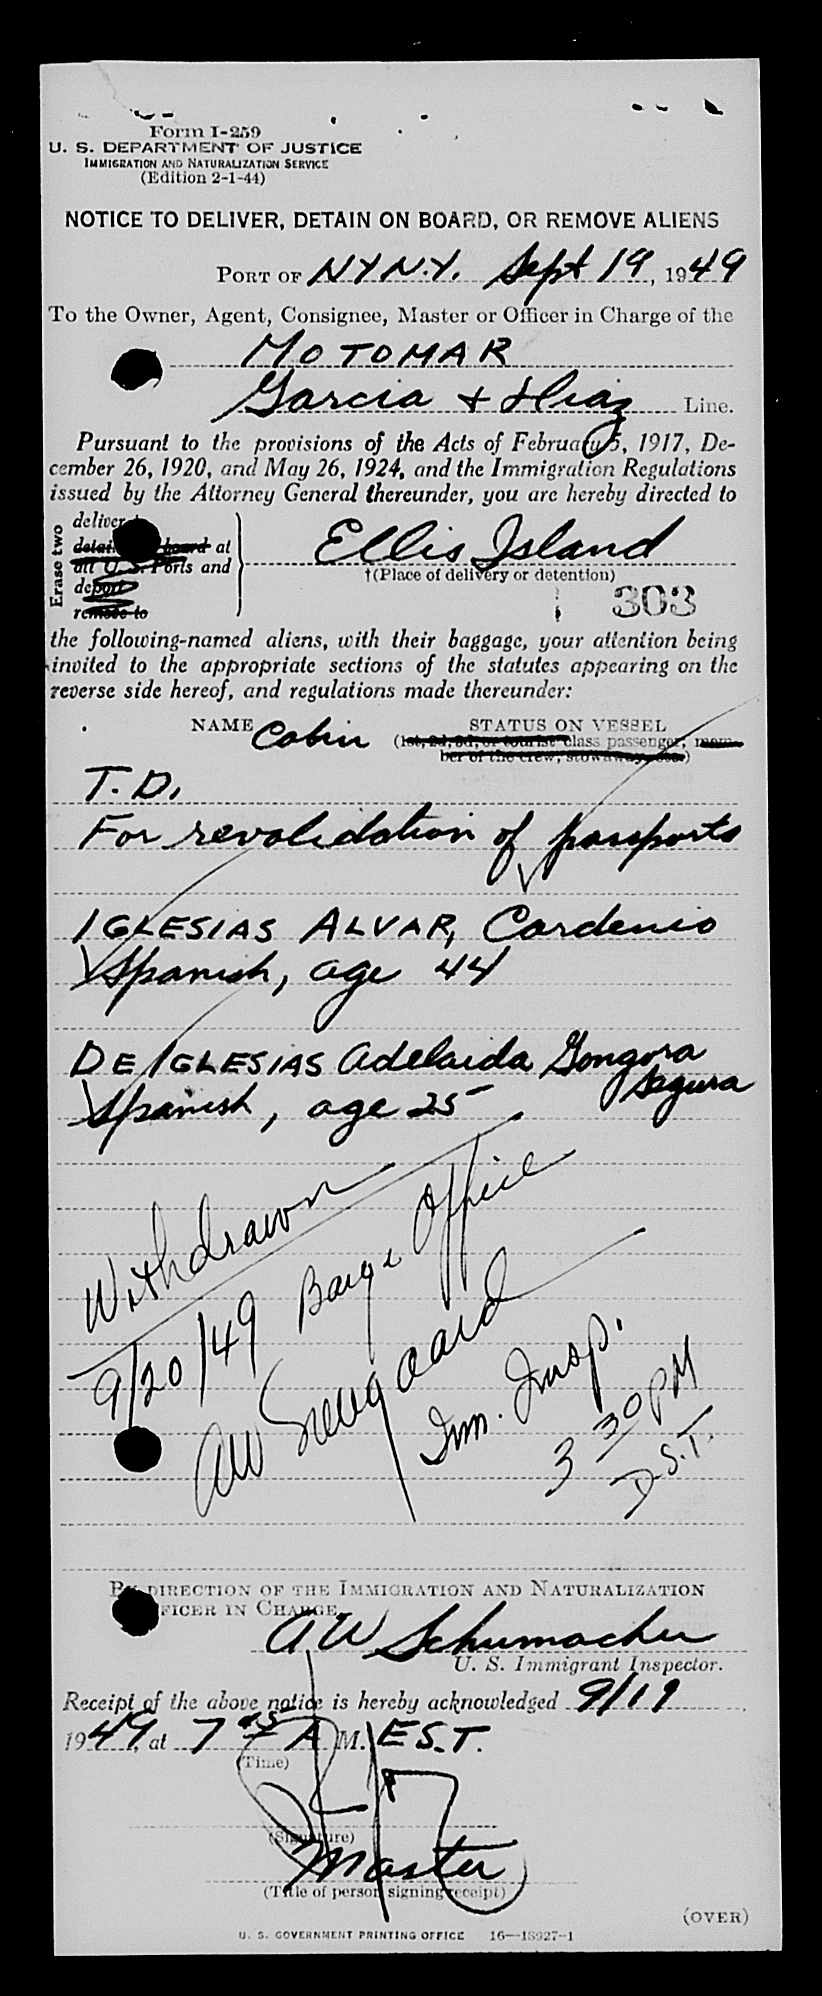 Form I-259
U. S. DEPARTMENT OF JUSTICE
IMMIGRATION AND NATURALIZATION SERVICE
(Edition 2-1-44)
NOTICE TO DELIVER, DETAIN ON BOARD, OR REMOVE ALIENS
PORT OF NY N.Y. Sept 19, 1949
To the Owner, Agent, Consignee, Master or Officer in Charge of the
MOTOMAR
Garcia + Diaz Line.
Pursuant to the provisions of the Acts of February 5, 1917, De-
cember 26, 1920, and May 26, 1924, and the Immigration Regulations
issued by the Attorney General thereunder, you are hereby directed to
Erase two
deliver
board at
all U. S. Ports and
deport
remove to
Ellis Island
†(Place of delivery or detention)
303
the following-named aliens, with their baggage, your attention being
invited to the appropriate sections of the statutes appearing on the
reverse side hereof, and regulations made thereunder:
NAME Cabin STATUS ON VESSEL
(1st, 2d, 3d, or tourist class passenger, mem-
ber of the crew, stowaway, etc.)
T. D.
For revalidation of passports
IGLESIAS ALVAR, Cardenio
Spanish, age 44
DE IGLESIAS Adelaida Gongora
Segura
Spanish, age 25
Withdrawn
9/20/49 Barge Office
AW
Imm. Insp.
3 30 PM
D.S.T.
BY DIRECTION OF THE IMMIGRATION AND NATURALIZATION
OFFICER IN CHARGE
AW Schumacher
U. S. Immigrant Inspector.
Receipt of the above notice is hereby acknowledged 9/19
1949, at 7 45 A M. E S.T.
(Time)
(Signature)
Master
(Title of person signing receipt)
(OVER)
U. S. GOVERNMENT PRINTING OFFICE 16—18927-1